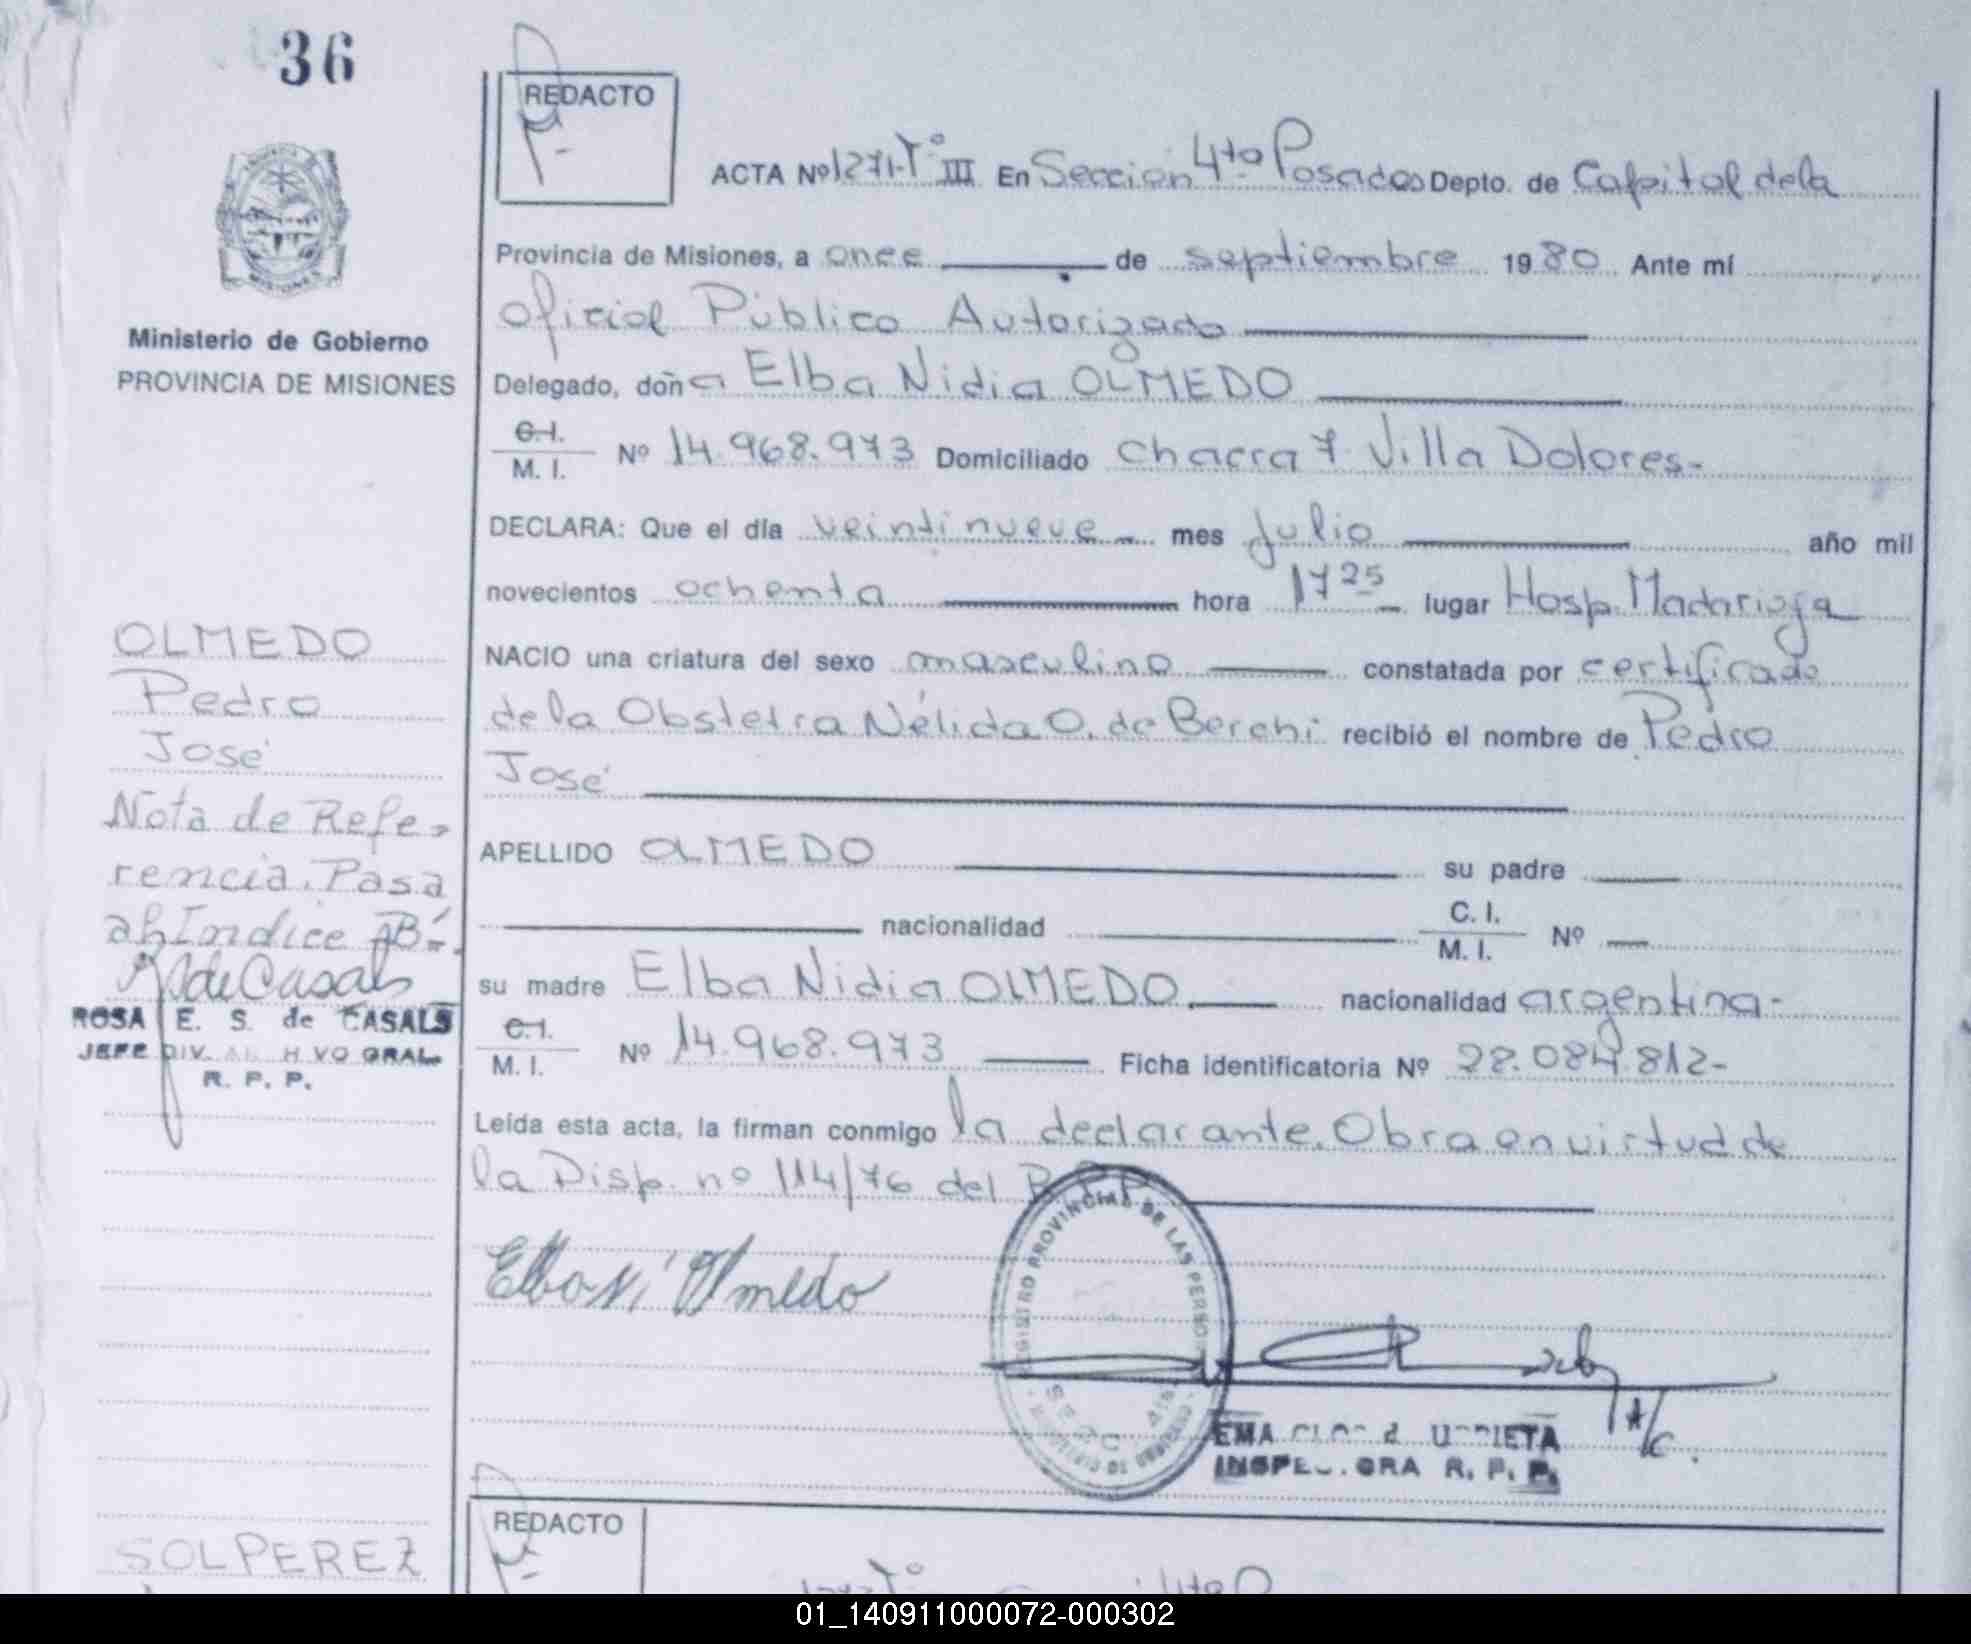 36
REDACTO
ACTA Nº 1271-Tº III En Sección 4ta Posadas Depto. de Capital de la
Provincia de Misiones, a once de septiembre 1980. Ante mí
Oficial Público Autorizado
Delegado, doña Elba Nidia OLMEDO
C.I.
M. I. Nº 14.968.973 Domiciliado Chacra 7 Villa Dolores-
DECLARA: Que el día veintinueve mes julio año mil
novecientos ochenta hora 17 25 lugar Hosp. Madariaga
NACIO una criatura del sexo masculino constatada por certificado
de la Obstetra Nélida O. de Berchi recibió el nombre de Pedro
José
APELLIDO OLMEDO su padre
nacionalidad C. I.
M. I. Nº
su madre Elba Nidia OLMEDO. nacionalidad argentina-
C.I.
M. I. Nº 14.968.973 Ficha identificatoria Nº 28.084.812-
Leída esta acta, la firman conmigo la declarante. Obra en virtud de
la Disp. nº 114/76 del R.P.P.
Elba N. Olmedo
REGISTRO PROVINCIAL DE LAS PERSONAS
MINISTERIO DE GOBIERNO
EMA
INSPECTORA R. P. P.
Ministerio de Gobierno
PROVINCIA DE MISIONES
OLMEDO
Pedro
José
Nota de Refe-
rencia. Pasa
al Indice "B".
de Casals
ROSA E. S. de CASALS
JEFE DIV. ARCHIVO GRAL.
R. P. P.
SOLPEREZ
REDACTO
01_140911000072-000302